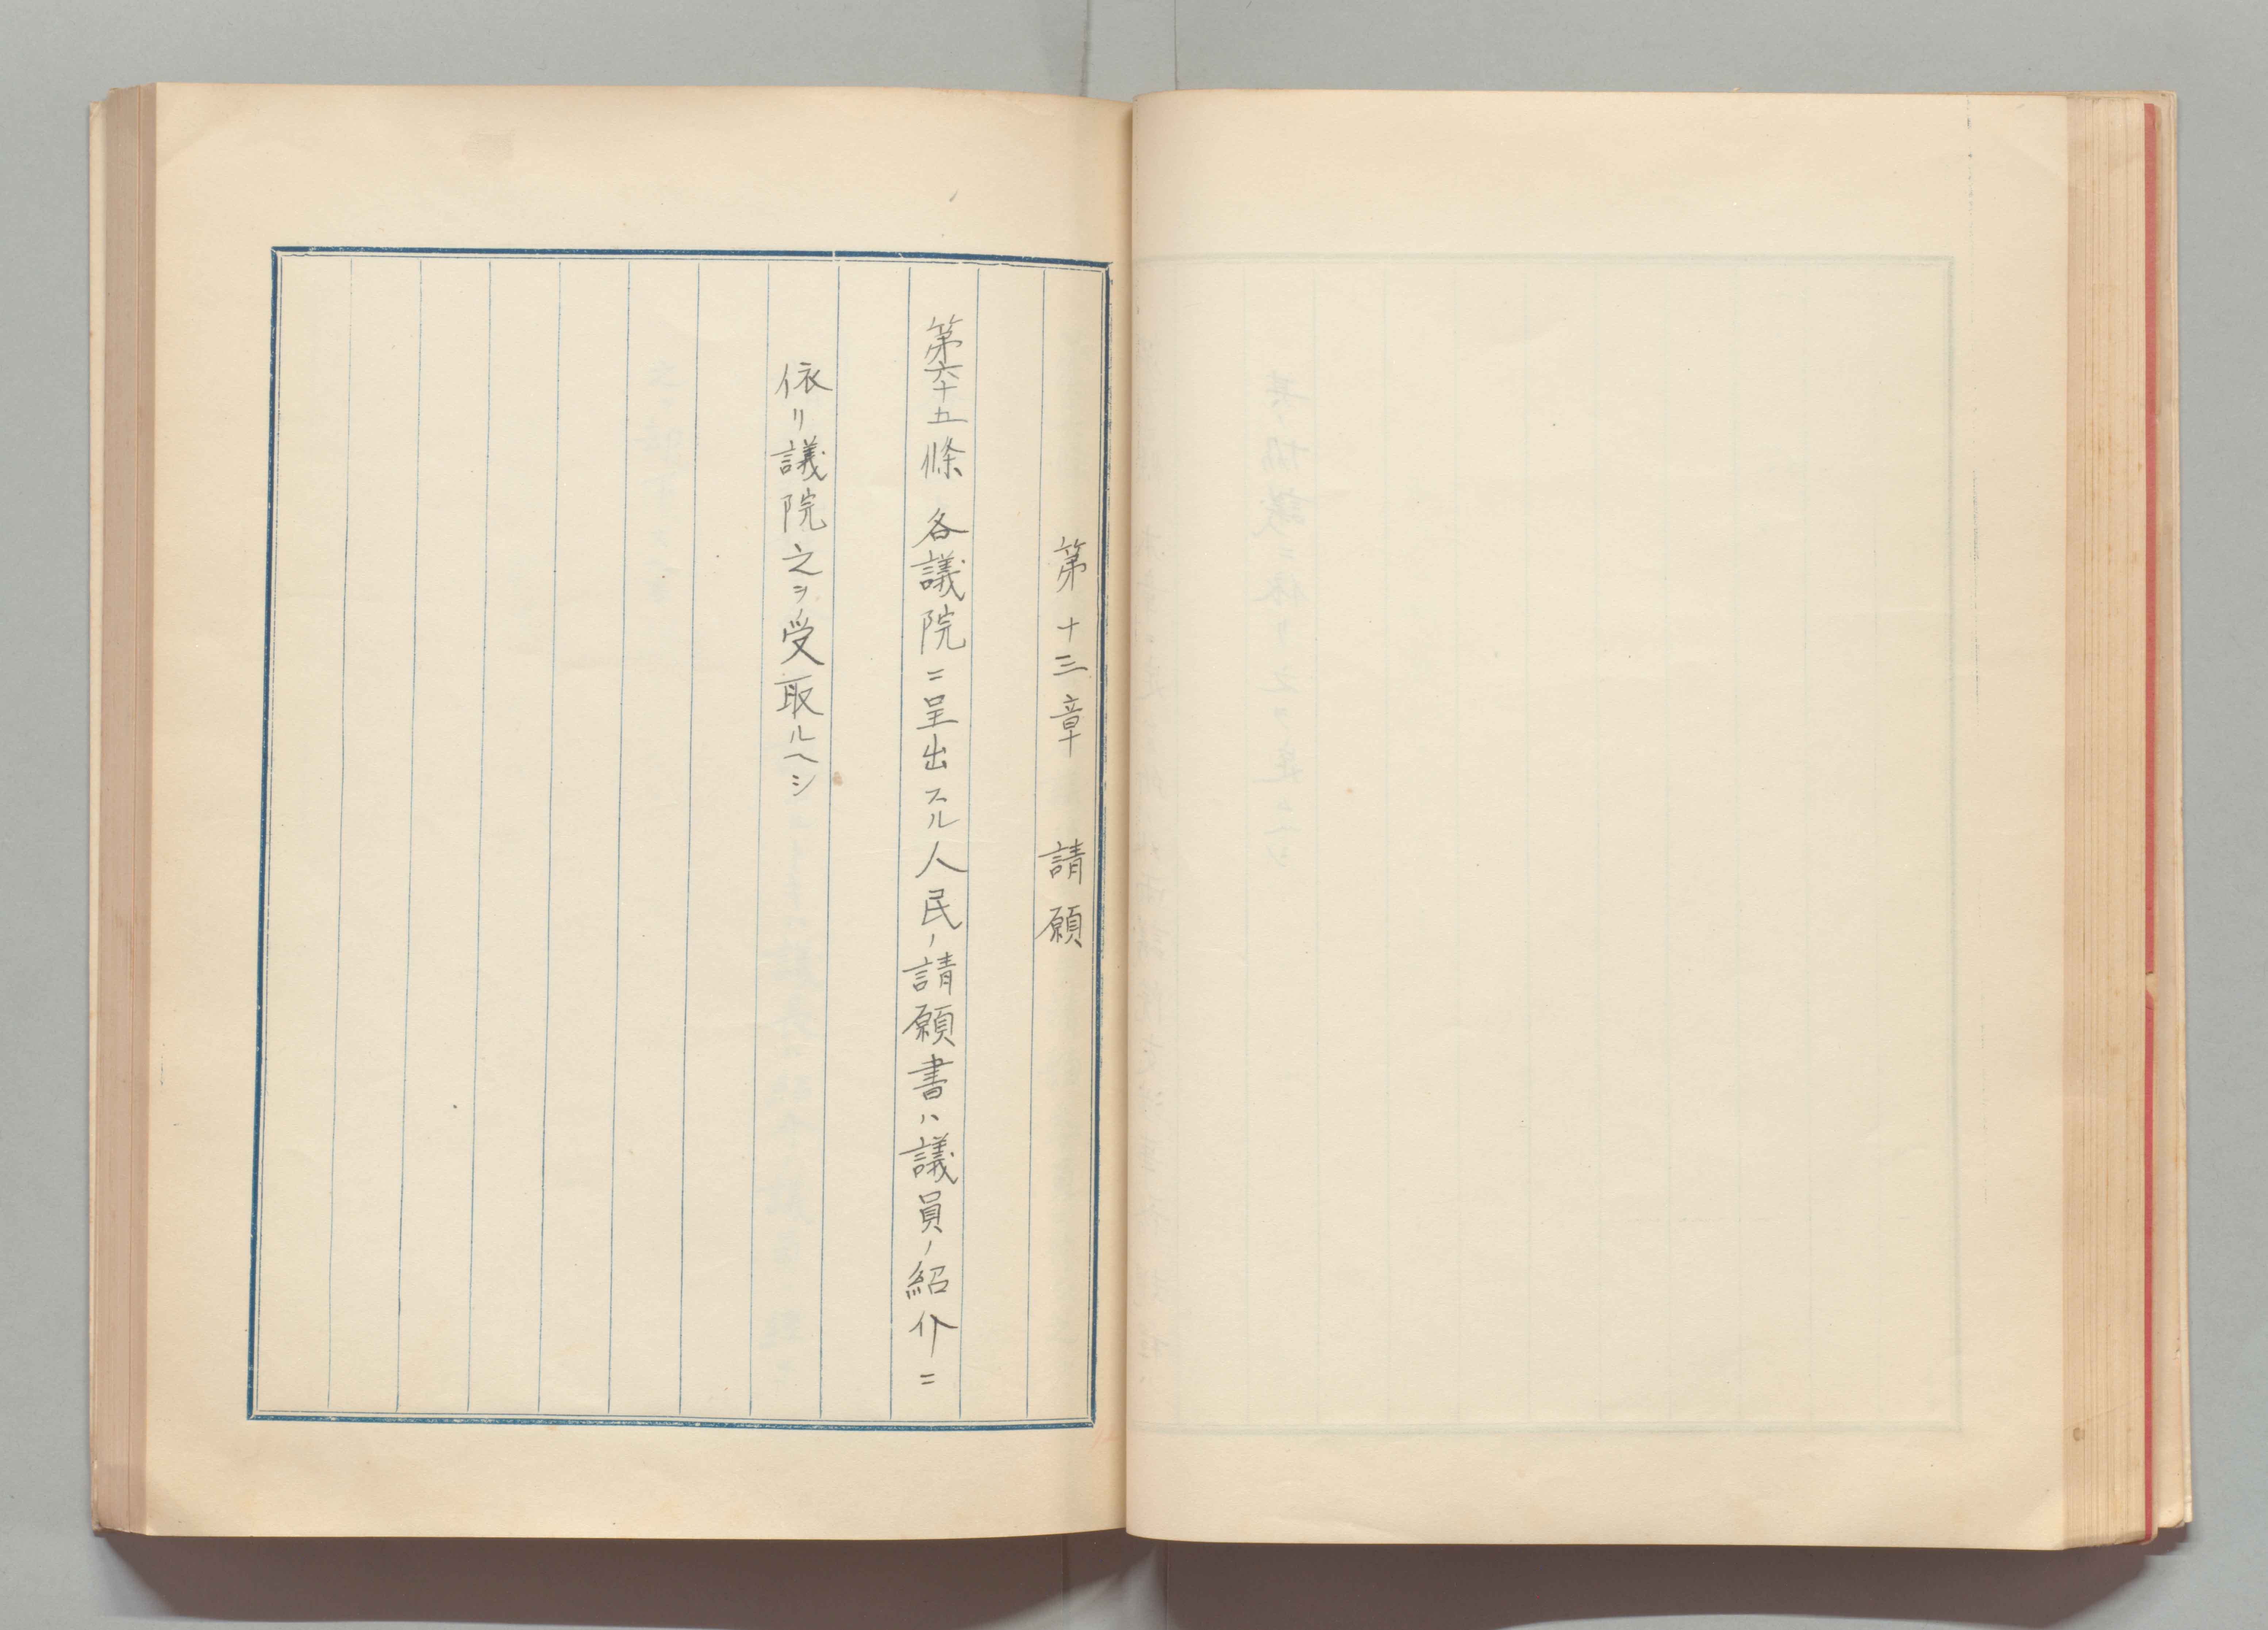 第十三章　請願
第六十五條　各議院ニ呈出スル人民ノ請願書ハ議員ノ紹介ニ
依リ議院之ヲ受取ルヘシ